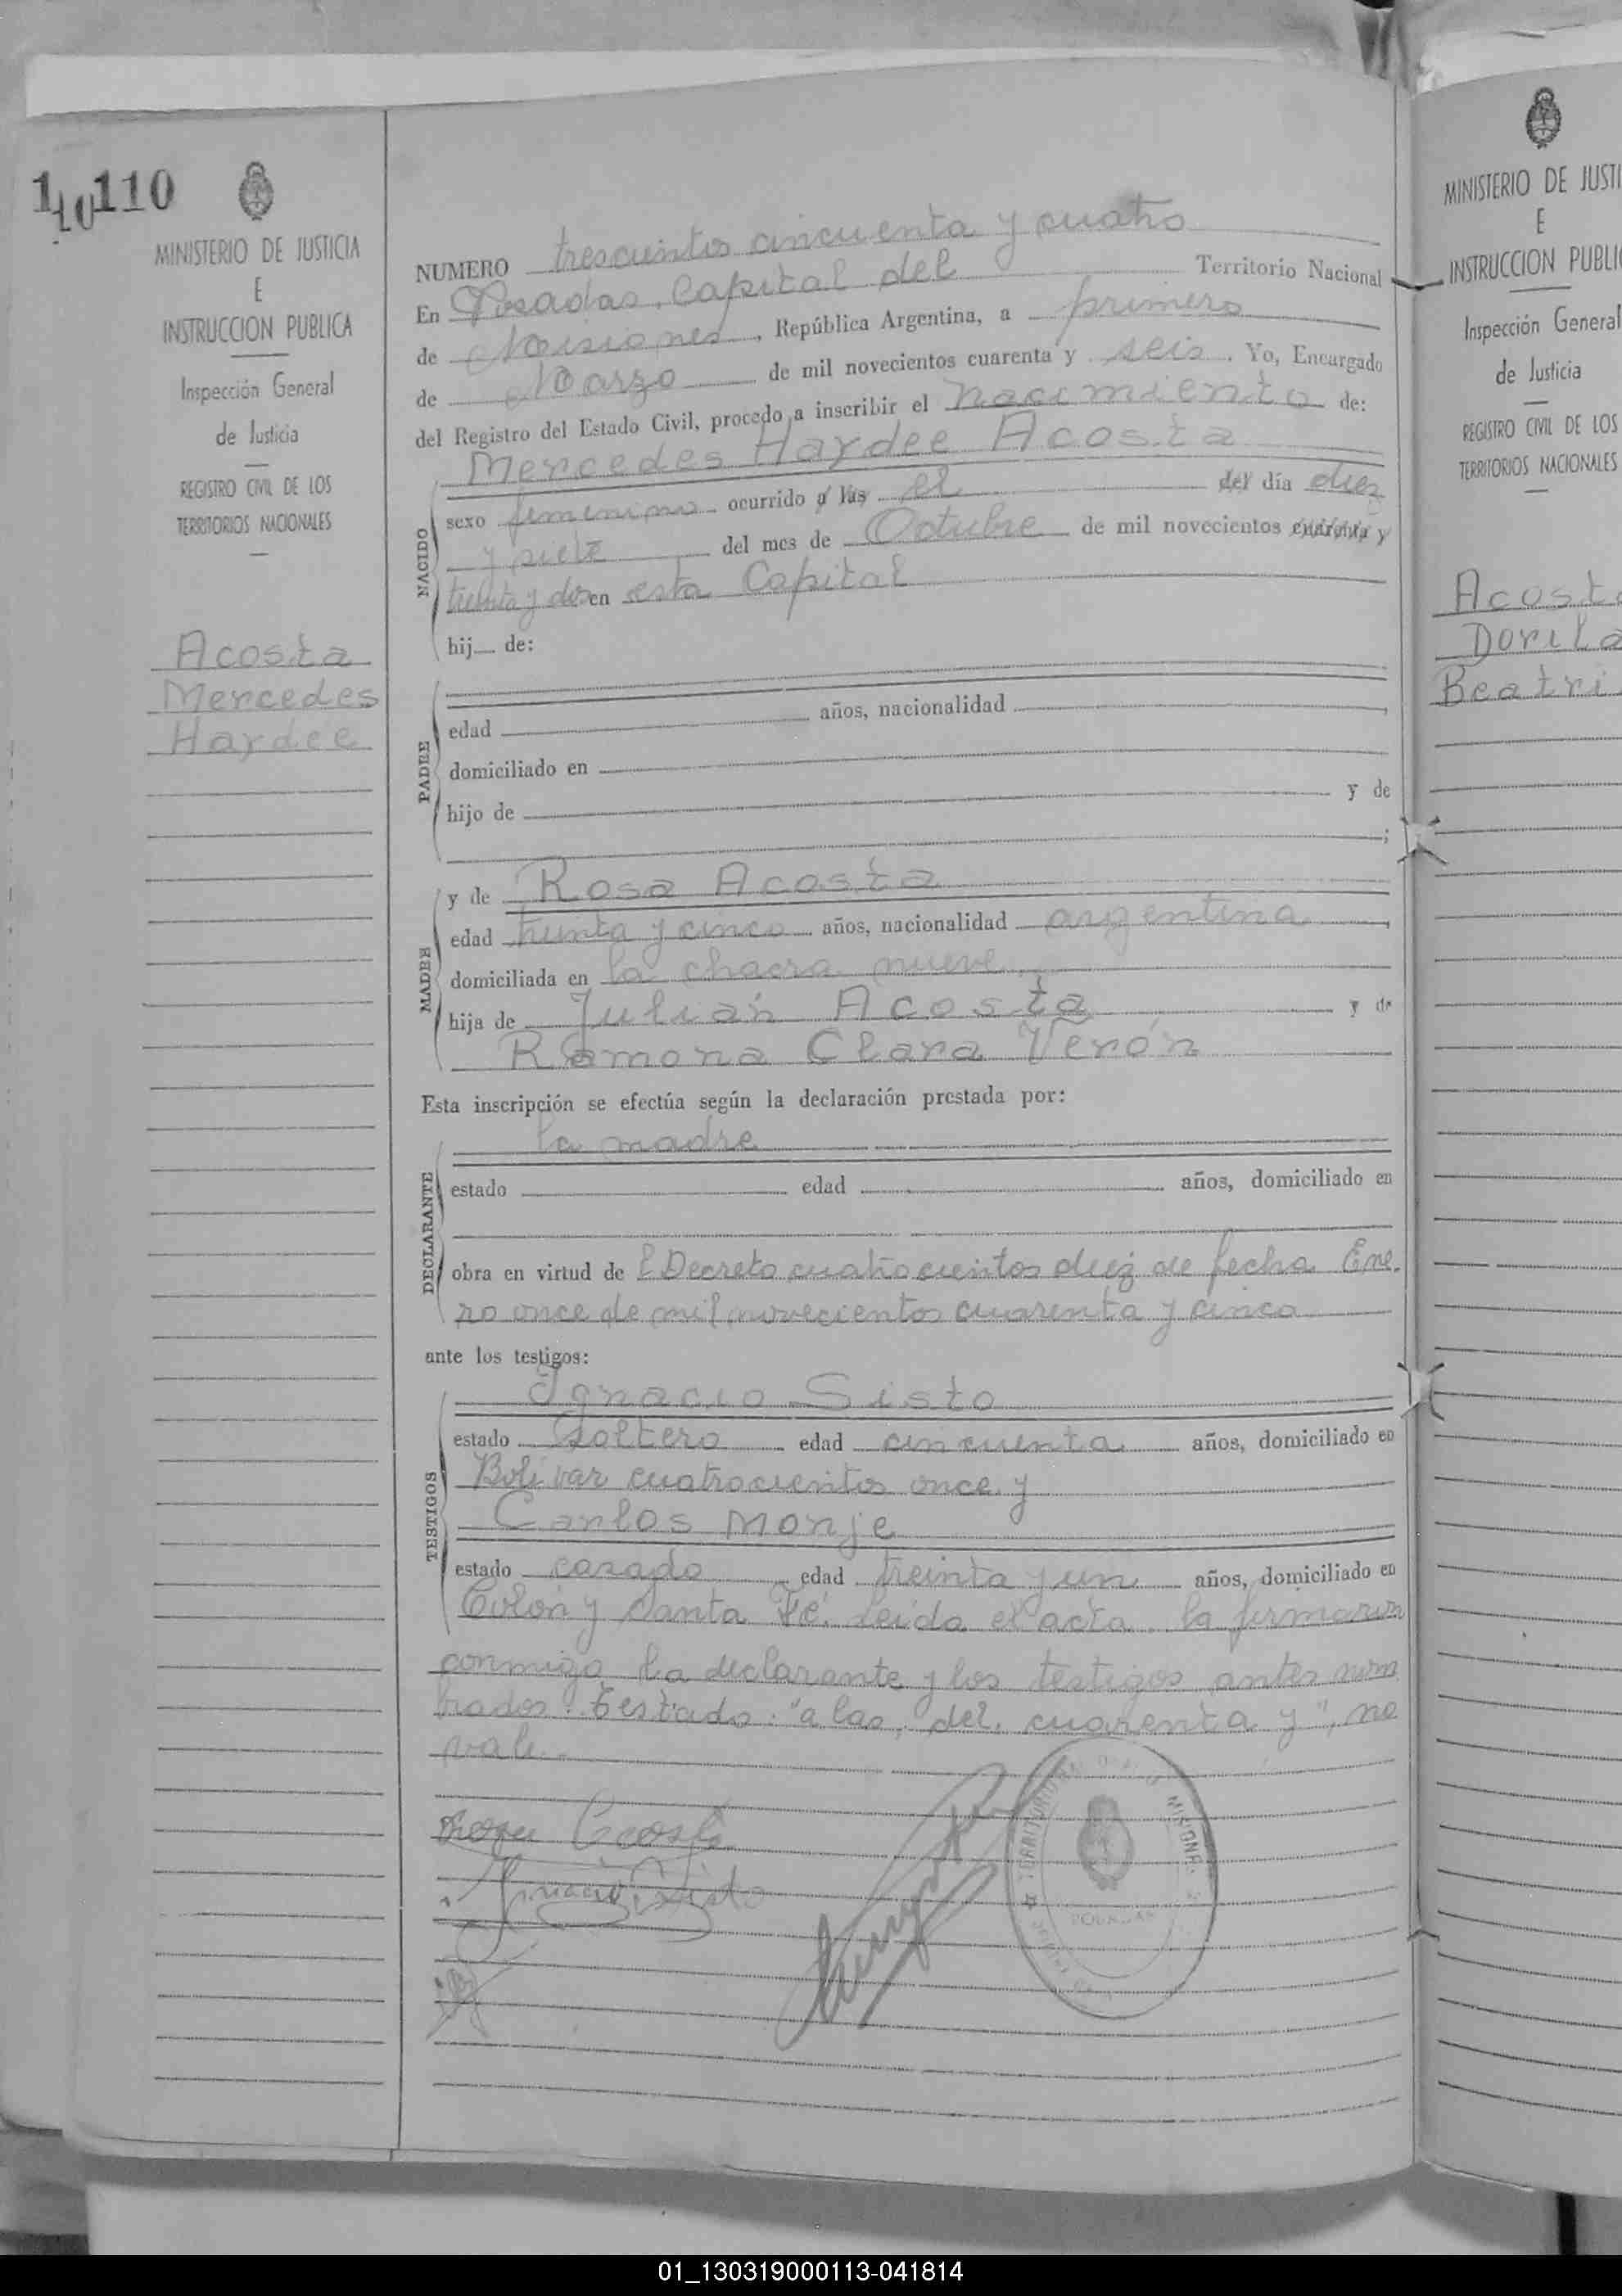 110
MINISTERIO DE JUSTICIA
E
INSTRUCCION PUBLICA
Inspección General
de Justicia
REGISTRO CIVIL DE LOS
TERRITORIOS NACIONALES
Acosta
Mercedes
Haydee
NUMERO trescientos cincuenta y cuatro
En Posadas, Capital del Territorio Nacional
de Misiones, República Argentina, a primero
de Marzo de mil novecientos cuarenta y seis. Yo, Encargado
del Registro del Estado Civil, procedo a inscribir el nacimiento de:
NACIDO
Mercedes Haydee Acosta
sexo femenino ocurrido a las el del día diez
y siete del mes de Octubre de mil novecientos cuarenta y
treinta y dos en esta Capital
hij de:
PADRE
edad años, nacionalidad
domiciliado en
hijo de y de
;
MADRE
y de Rosa Acosta
edad treinta y cinco años, nacionalidad argentina,
domiciliada en la chacra nueve
hija de Julián Acosta y de
Ramona Clara Verón
Esta inscripción se efectúa según la declaración prestada por:
DECLARANTE
la madre
estado edad años, domiciliado en
obra en virtud de l Decreto cuatrocientos diez de fecha Ene-
ro once de mil novecientos cuarenta y cinco
ante los testigos:
TESTIGOS
Ignacio Sisto
estado soltero edad cincuenta años, domiciliado en
Bolívar cuatrocientos once y
Carlos Monje
estado casado edad treinta y un años, domiciliado en
Colón y Santa Fé. Leida el acta la firmaron
conmigo la declarante y los testigos antes nom
brados. Testado: "a las, del, cuarenta y", no
vale.
Rosa Acosta
Ignacio Sisto
MINISTERIO DE JUSTI
E
INSTRUCCION PUBLI
Inspección General
de Justicia
REGISTRO CIVIL DE LOS
TERRITORIOS NACIONALES
Acosta
Dorila
Beatri
01_130319000113-041814